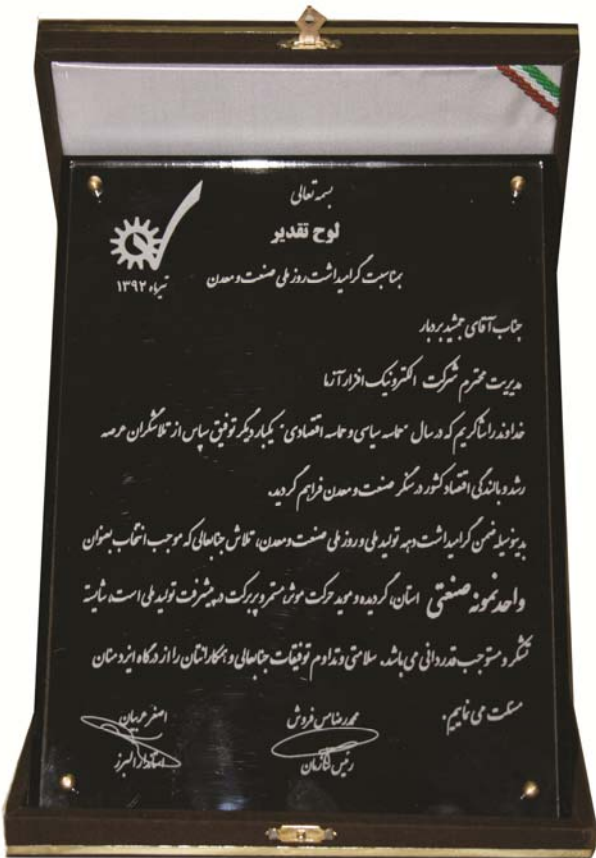 بسمه تعالی
لوح تقدیر
بمناسبت گرامیداشت روز ملی صنعت و معدن
تیرماه ۱۳۹۲
جناب آقای جمشید بردبار
مدیریت محترم شرکت الکترونیک افزار آزما
خداوند را شاکریم که در سال "حماسه سیاسی و حماسه اقتصادی" یکبار دیگر توفیق سپاس از تلاشگران عرصه
رشد و بالندگی اقتصاد کشور در سنگر صنعت و معدن فراهم گردید.
بدینوسیله ضمن گرامیداشت دهه تولید ملی و روز ملی صنعت و معدن، تلاش جنابعالی که موجب انتخاب بعنوان
واحد نمونه صنعتی استان، گردیده و موید حرکت موثر، مستمر و پربرکت در پیشرفت تولید ملی است، شایسته
تشکر و مستوجب قدردانی می باشد. سلامتی و تداوم توفیقات جنابعالی و همکارانتان را از درگاه ایزد منان
مسئلت می نماییم.
محمدرضا مس فروش
رئیس سازمان
اصغر عربیان
استاندار البرز